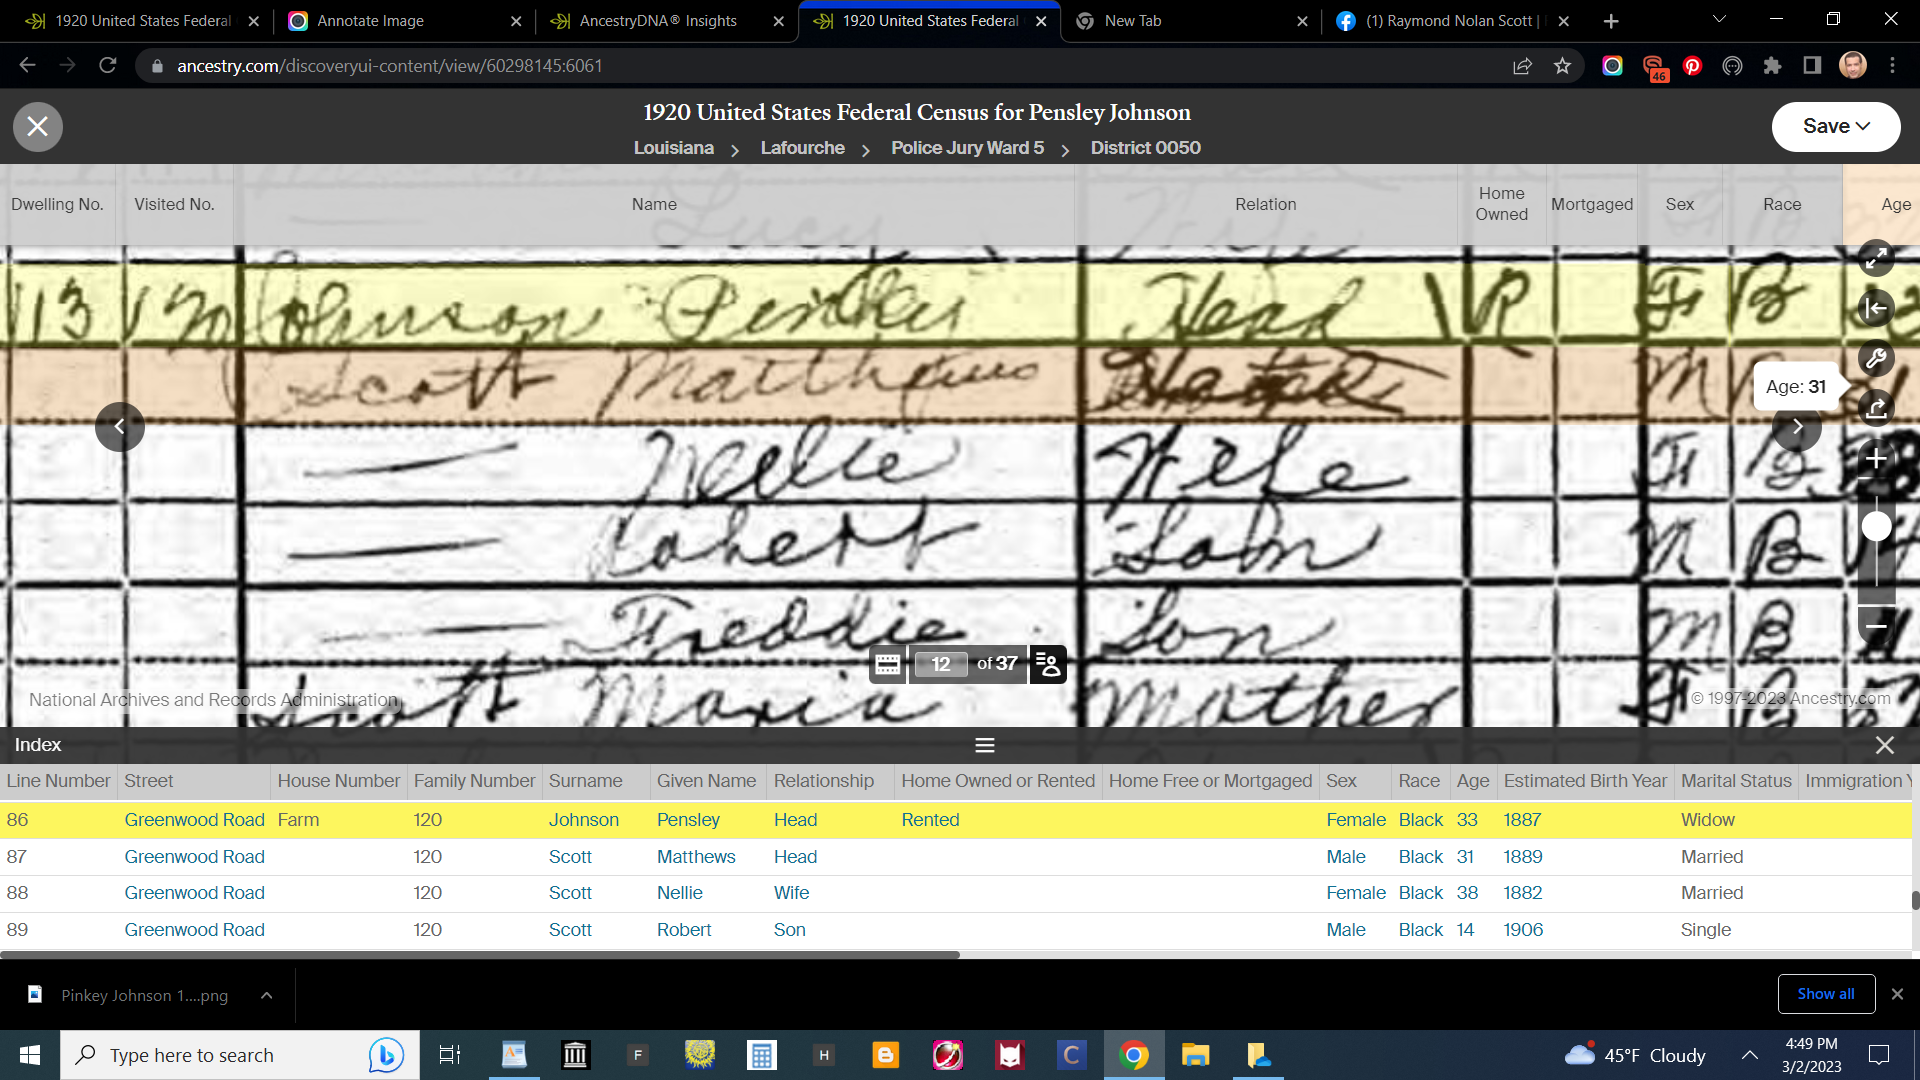 1920 United States Federal
Annotate Image
AncestryDNA® Insights
1920 United States Federal
New Tab
(1) Raymond Nolan Scott |
ancestry.com/discoveryui-content/view/60298145:6061
46
1920 United States Federal Census for Pensley Johnson
Louisiana > Lafourche > Police Jury Ward 5 > District 0050
Save
Dwelling No. Visited No. Name Relation Home Owned Mortgaged Sex Race Age
Lucy
113 120 Johnson Pinkey Head 1 R F B 33
Scott Matthews M
Age: 31
— Nellie Wife F B
— Robert Son M B 14
— Freddie Son M B
Scott Maria Mother F B
12 of 37
National Archives and Records Administration
© 1997-2023 Ancestry.com
Index
Line Number Street House Number Family Number Surname Given Name Relationship Home Owned or Rented Home Free or Mortgaged Sex Race Age Estimated Birth Year Marital Status Immigration Y
86 Greenwood Road Farm 120 Johnson Pensley Head Rented Female Black 33 1887 Widow
87 Greenwood Road 120 Scott Matthews Head Male Black 31 1889 Married
88 Greenwood Road 120 Scott Nellie Wife Female Black 38 1882 Married
89 Greenwood Road 120 Scott Robert Son Male Black 14 1906 Single
Pinkey Johnson 1....png
Show all
Type here to search
F
H
C
45°F Cloudy
4:49 PM
3/2/2023